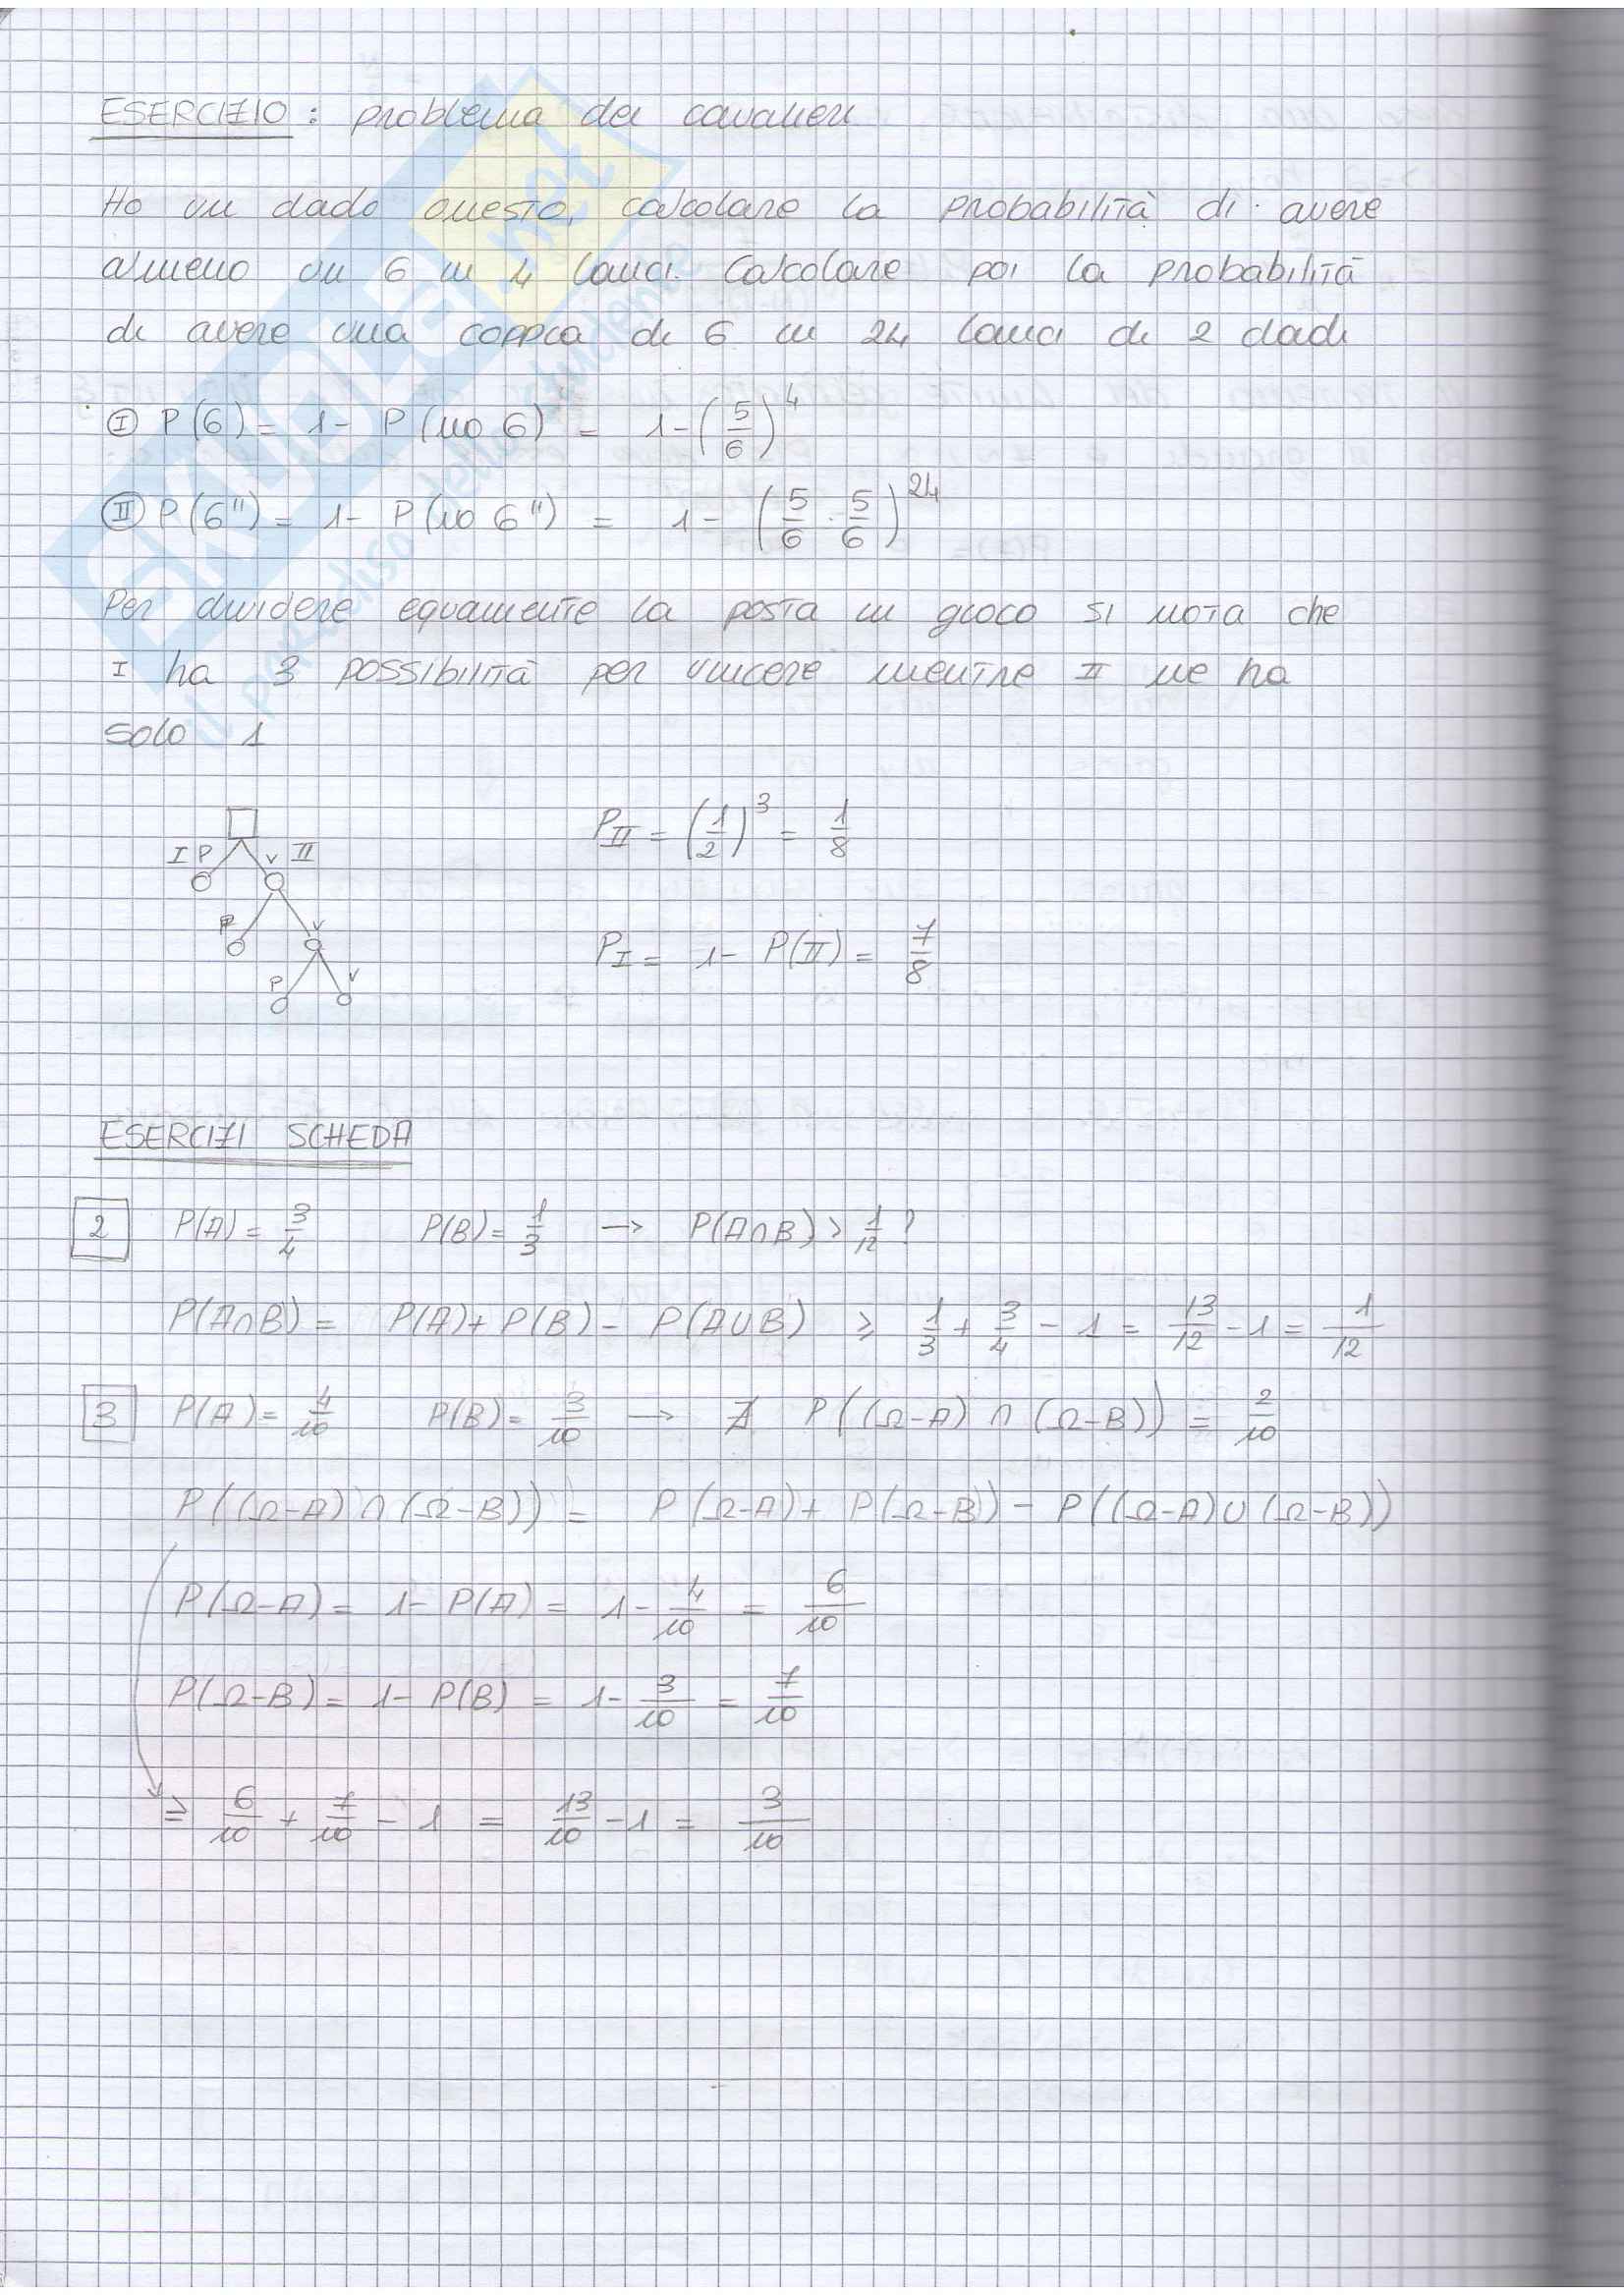 ESERCIZIO: problema dei cavalieri
Ho un dado onesto, calcolare la probabilità di avere
almeno un 6 in 4 lanci. Calcolare poi la probabilità
di avere una coppia di 6 in 24 lanci di 2 dadi
Ⓘ P(6) = 1 - P(no 6) = 1 - (5/6)^4
Ⓘ︎Ⓘ P(6") = 1 - P(no 6") = 1 - (5/6 · 5/6)^24
Per dividere equamente la posta in gioco si nota che
I ha 3 possibilità per vincere mentre II ne ha
solo 1
I P V II
P V
P V
P_II = (1/2)^3 = 1/8
P_I = 1 - P(II) = 7/8
ESERCIZI SCHEDA
2 P(A) = 3/4 P(B) = 1/3 → P(A∩B) > 1/12 ?
P(A∩B) = P(A) + P(B) - P(A∪B) ≥ 1/3 + 3/4 - 1 = 13/12 - 1 = 1/12
3 P(A) = 4/10 P(B) = 3/10 → P((Ω-A) ∩ (Ω-B)) = 2/10
P((Ω-A) ∩ (Ω-B)) = P(Ω-A) + P(Ω-B) - P((Ω-A) ∪ (Ω-B))
P(Ω-A) = 1 - P(A) = 1 - 4/10 = 6/10
P(Ω-B) = 1 - P(B) = 1 - 3/10 = 7/10
≥ 6/10 + 7/10 - 1 = 13/10 - 1 = 3/10
SKUOLA.net
il paradiso dello studente